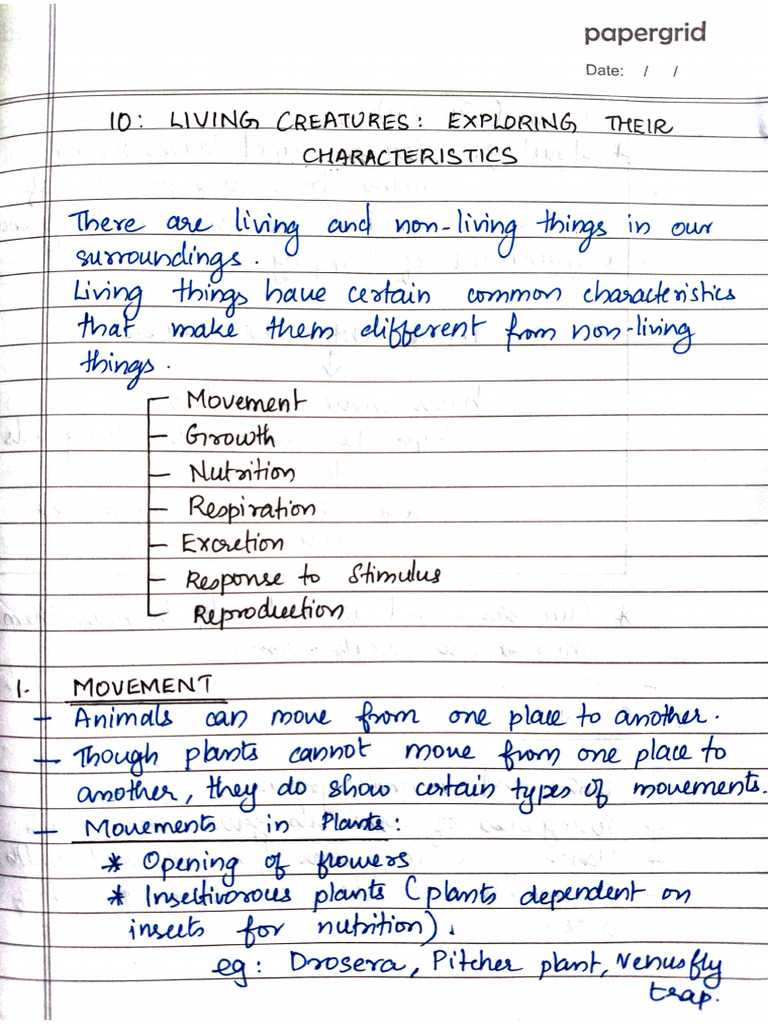 papergrid
Date: / /
10: LIVING CREATURES: EXPLORING THEIR
CHARACTERISTICS
There are living and non-living things in our
surroundings.
Living things have certain common characteristics
that make them different from non-living
things.
Movement
Growth
Nutrition
Respiration
Excretion
Response to Stimulus
Reproduction
1. MOVEMENT
- Animals can move from one place to another.
- Though plants cannot move from one place to
another, they do show certain types of movements.
- Movements in Plants:
* Opening of flowers
* Insectivorous plants (plants dependent on
insects for nutrition).
eg: Drosera, Pitcher plant, Venusfly
trap.